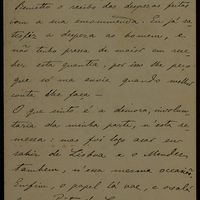 Remetto o recibo das despezas feitas
com a sua encommenda. Eu já sa-
tisfiz a despeza ao homem, e
não tenho pressa de maior em rece-
ber esta quantia, por isso lhe peço
que só m'a envie quando melhor
conta lhe faça —
O que sinto é a demora, involun-
taria da minha parte, n'esta re-
messa: mas foi logo acar en-
sahir de Lisboa e o Mendes
tambem, n'essa mesma occasião.
Emfim, o papel lá vae, e oxalá